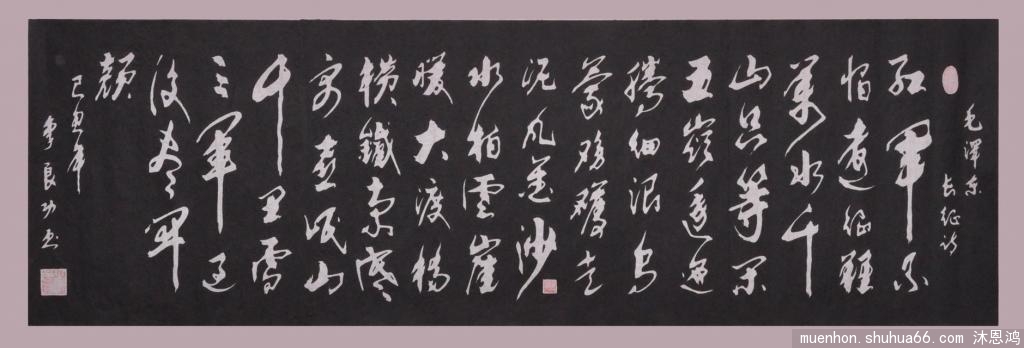 毛澤东
长征诗
红軍不
怕遠征難
萬水千
山只等闲
五嶺逶迤
腾细浪乌
蒙磅礴走
泥丸金沙
水拍雲崖
暖大渡桥
横鐵索寒
更喜岷山
千里雪
三軍过
後尽开
颜
年
良功书
muenhon.shuhua66.com 沐恩鸿